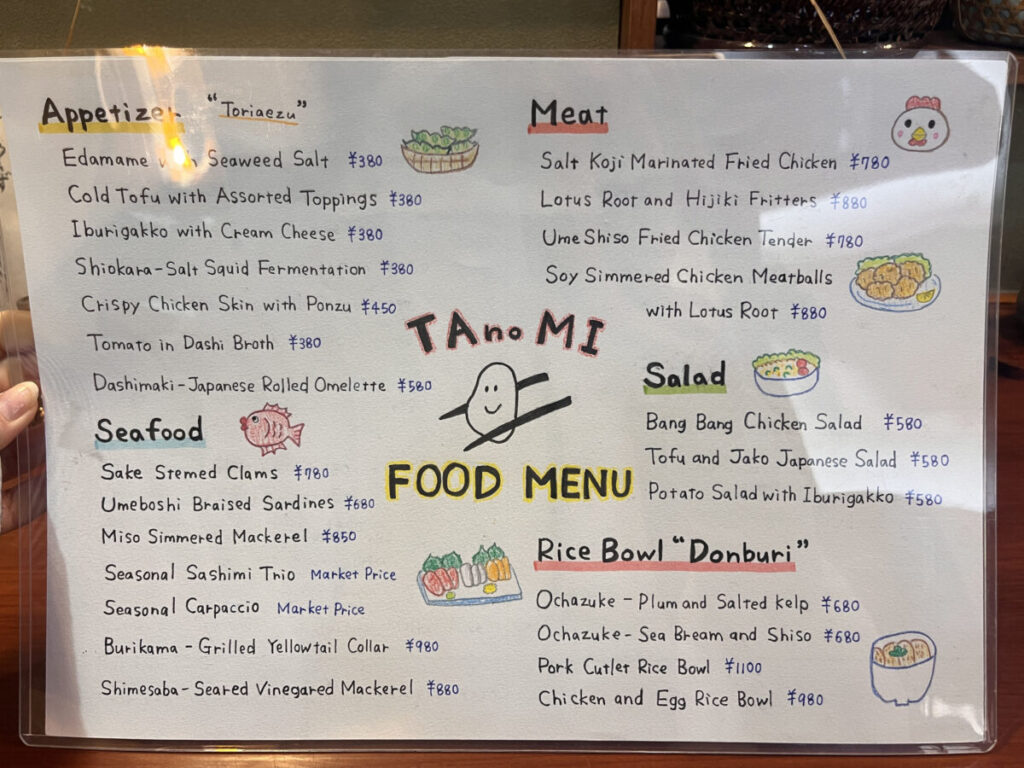 Appetizer "Toriaezu"
Edamame with Seaweed Salt ¥380
Cold Tofu with Assorted Toppings ¥380
Iburigakko with Cream Cheese ¥380
Shiokara-Salt Squid Fermentation ¥380
Crispy Chicken Skin with Ponzu ¥450
Tomato in Dashi Broth ¥380
Dashimaki-Japanese Rolled Omelette ¥580
Seafood
Sake Stemed Clams ¥780
Umeboshi Braised Sardines ¥680
Miso Simmered Mackerel ¥850
Seasonal Sashimi Trio Market Price
Seasonal Carpaccio Market Price
Burikama - Grilled Yellowtail Collar ¥980
Shimesaba-Seared Vinegared Mackerel ¥880
TAnoMI
FOOD MENU
Meat
Salt Koji Marinated Fried Chicken ¥780
Lotus Root and Hijiki Fritters ¥880
Ume Shiso Fried Chicken Tender ¥780
Soy Simmered Chicken Meatballs
with Lotus Root ¥880
Salad
Bang Bang Chicken Salad ¥580
Tofu and Jako Japanese Salad ¥580
Potato Salad with Iburigakko ¥580
Rice Bowl "Donburi"
Ochazuke - Plum and Salted kelp ¥680
Ochazuke - Sea Bream and Shiso ¥680
Pork Cutlet Rice Bowl ¥1100
Chicken and Egg Rice Bowl ¥980